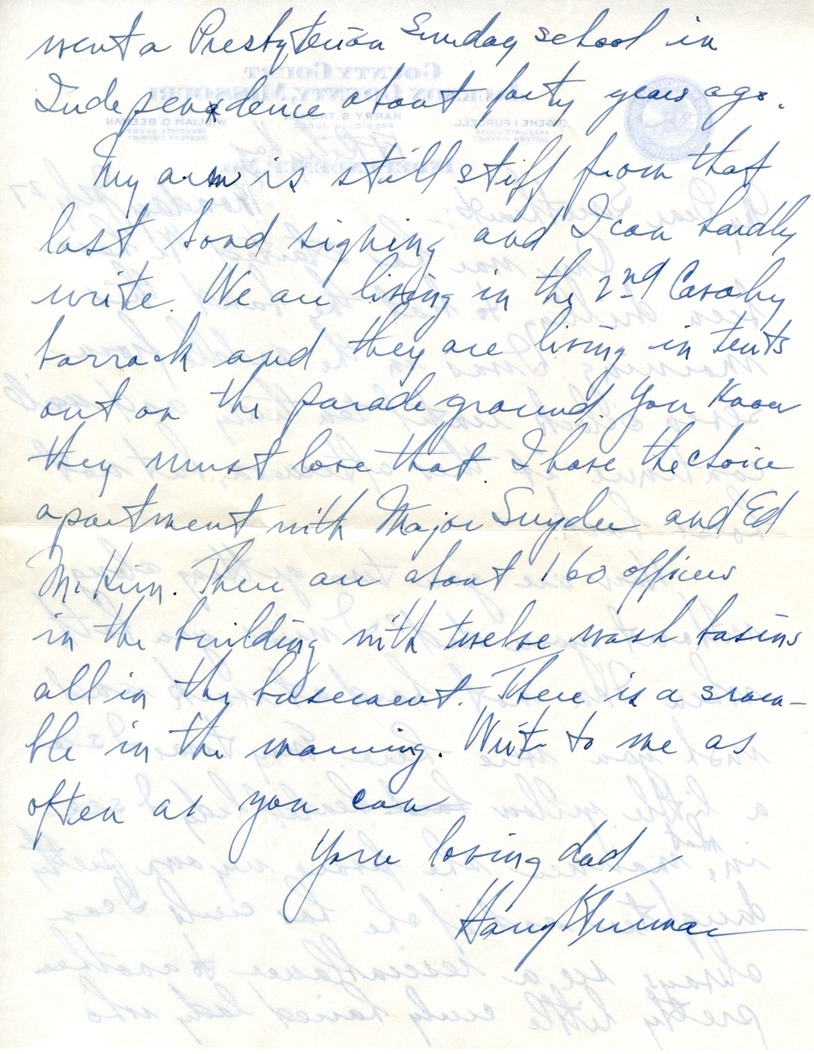 went a Presbyterian Sunday school in
Independence about forty years ago.
My arm is still stiff from that
last bond signing and I can hardly
write. We are living in the 2nd Cavalry
barrack and they are living in tents
out on the parade ground. You know
they must love that. I have the choice
apartment with Major Snyder and Ed
McKim. There are about 160 officers
in the building with twelve wash basins
all in the basement. There is a scram-
ble in the morning. Write to me as
often as you can
Your loving dad
Harry S Truman